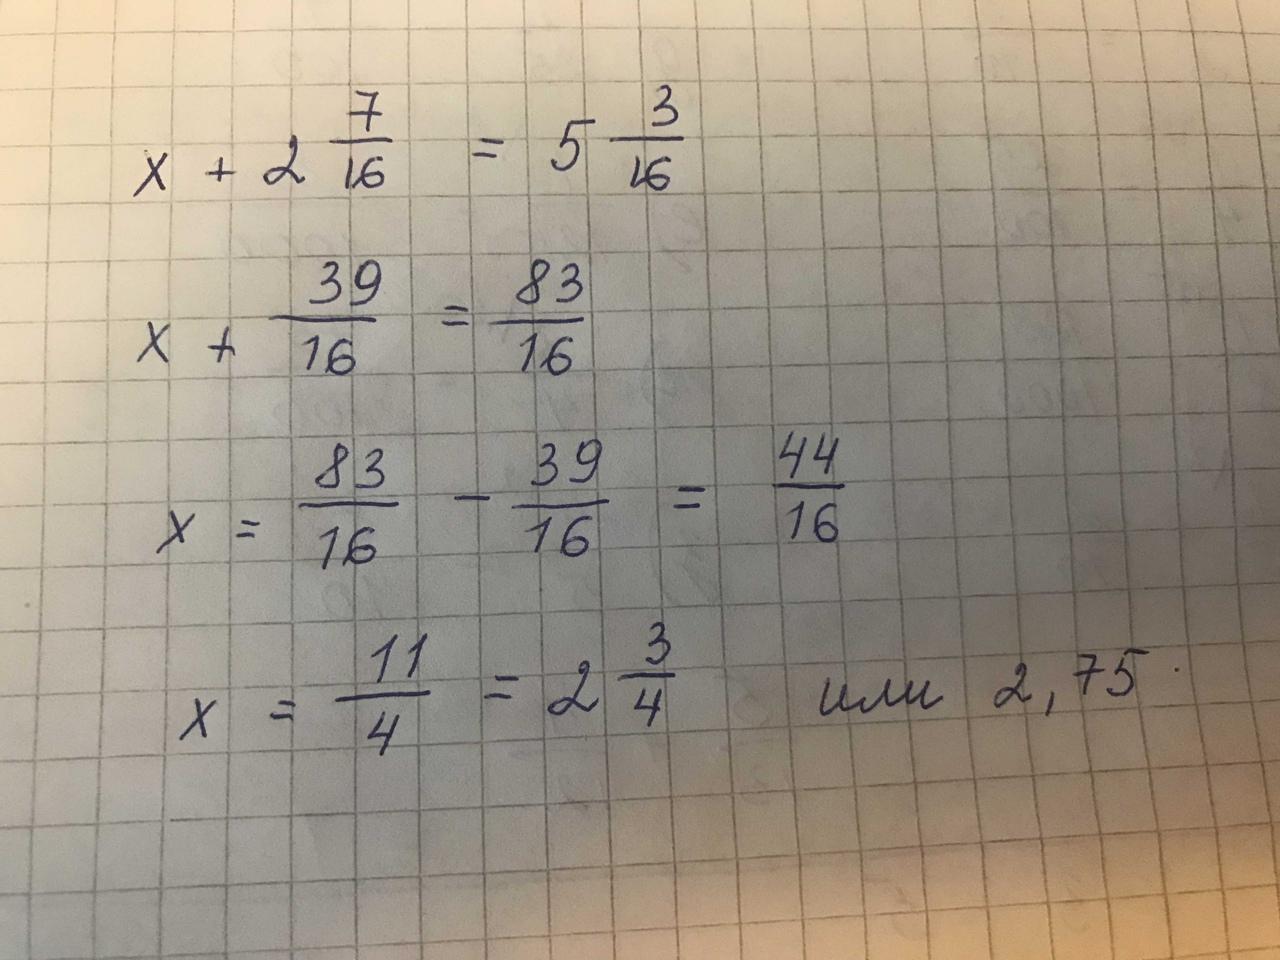 x + 2 7/16 = 5 3/16
x + 39/16 = 83/16
x = 83/16 - 39/16 = 44/16
x = 11/4 = 2 3/4 или 2,75